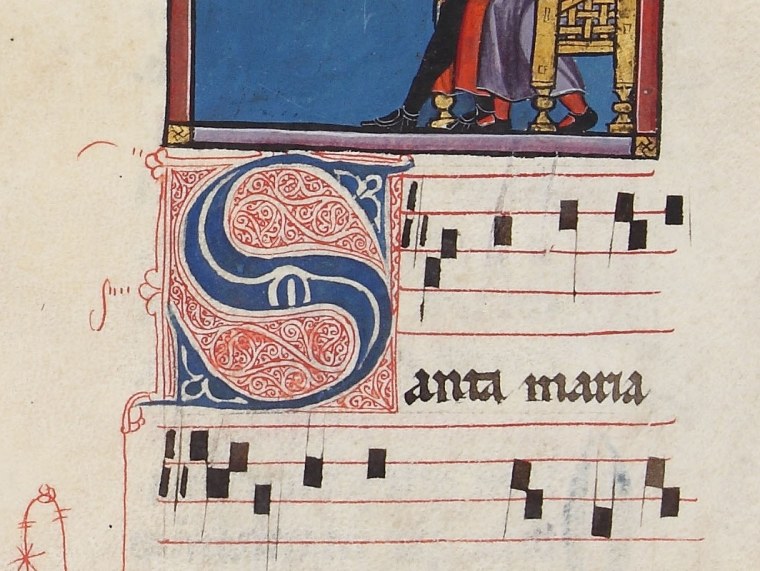 Santa maria